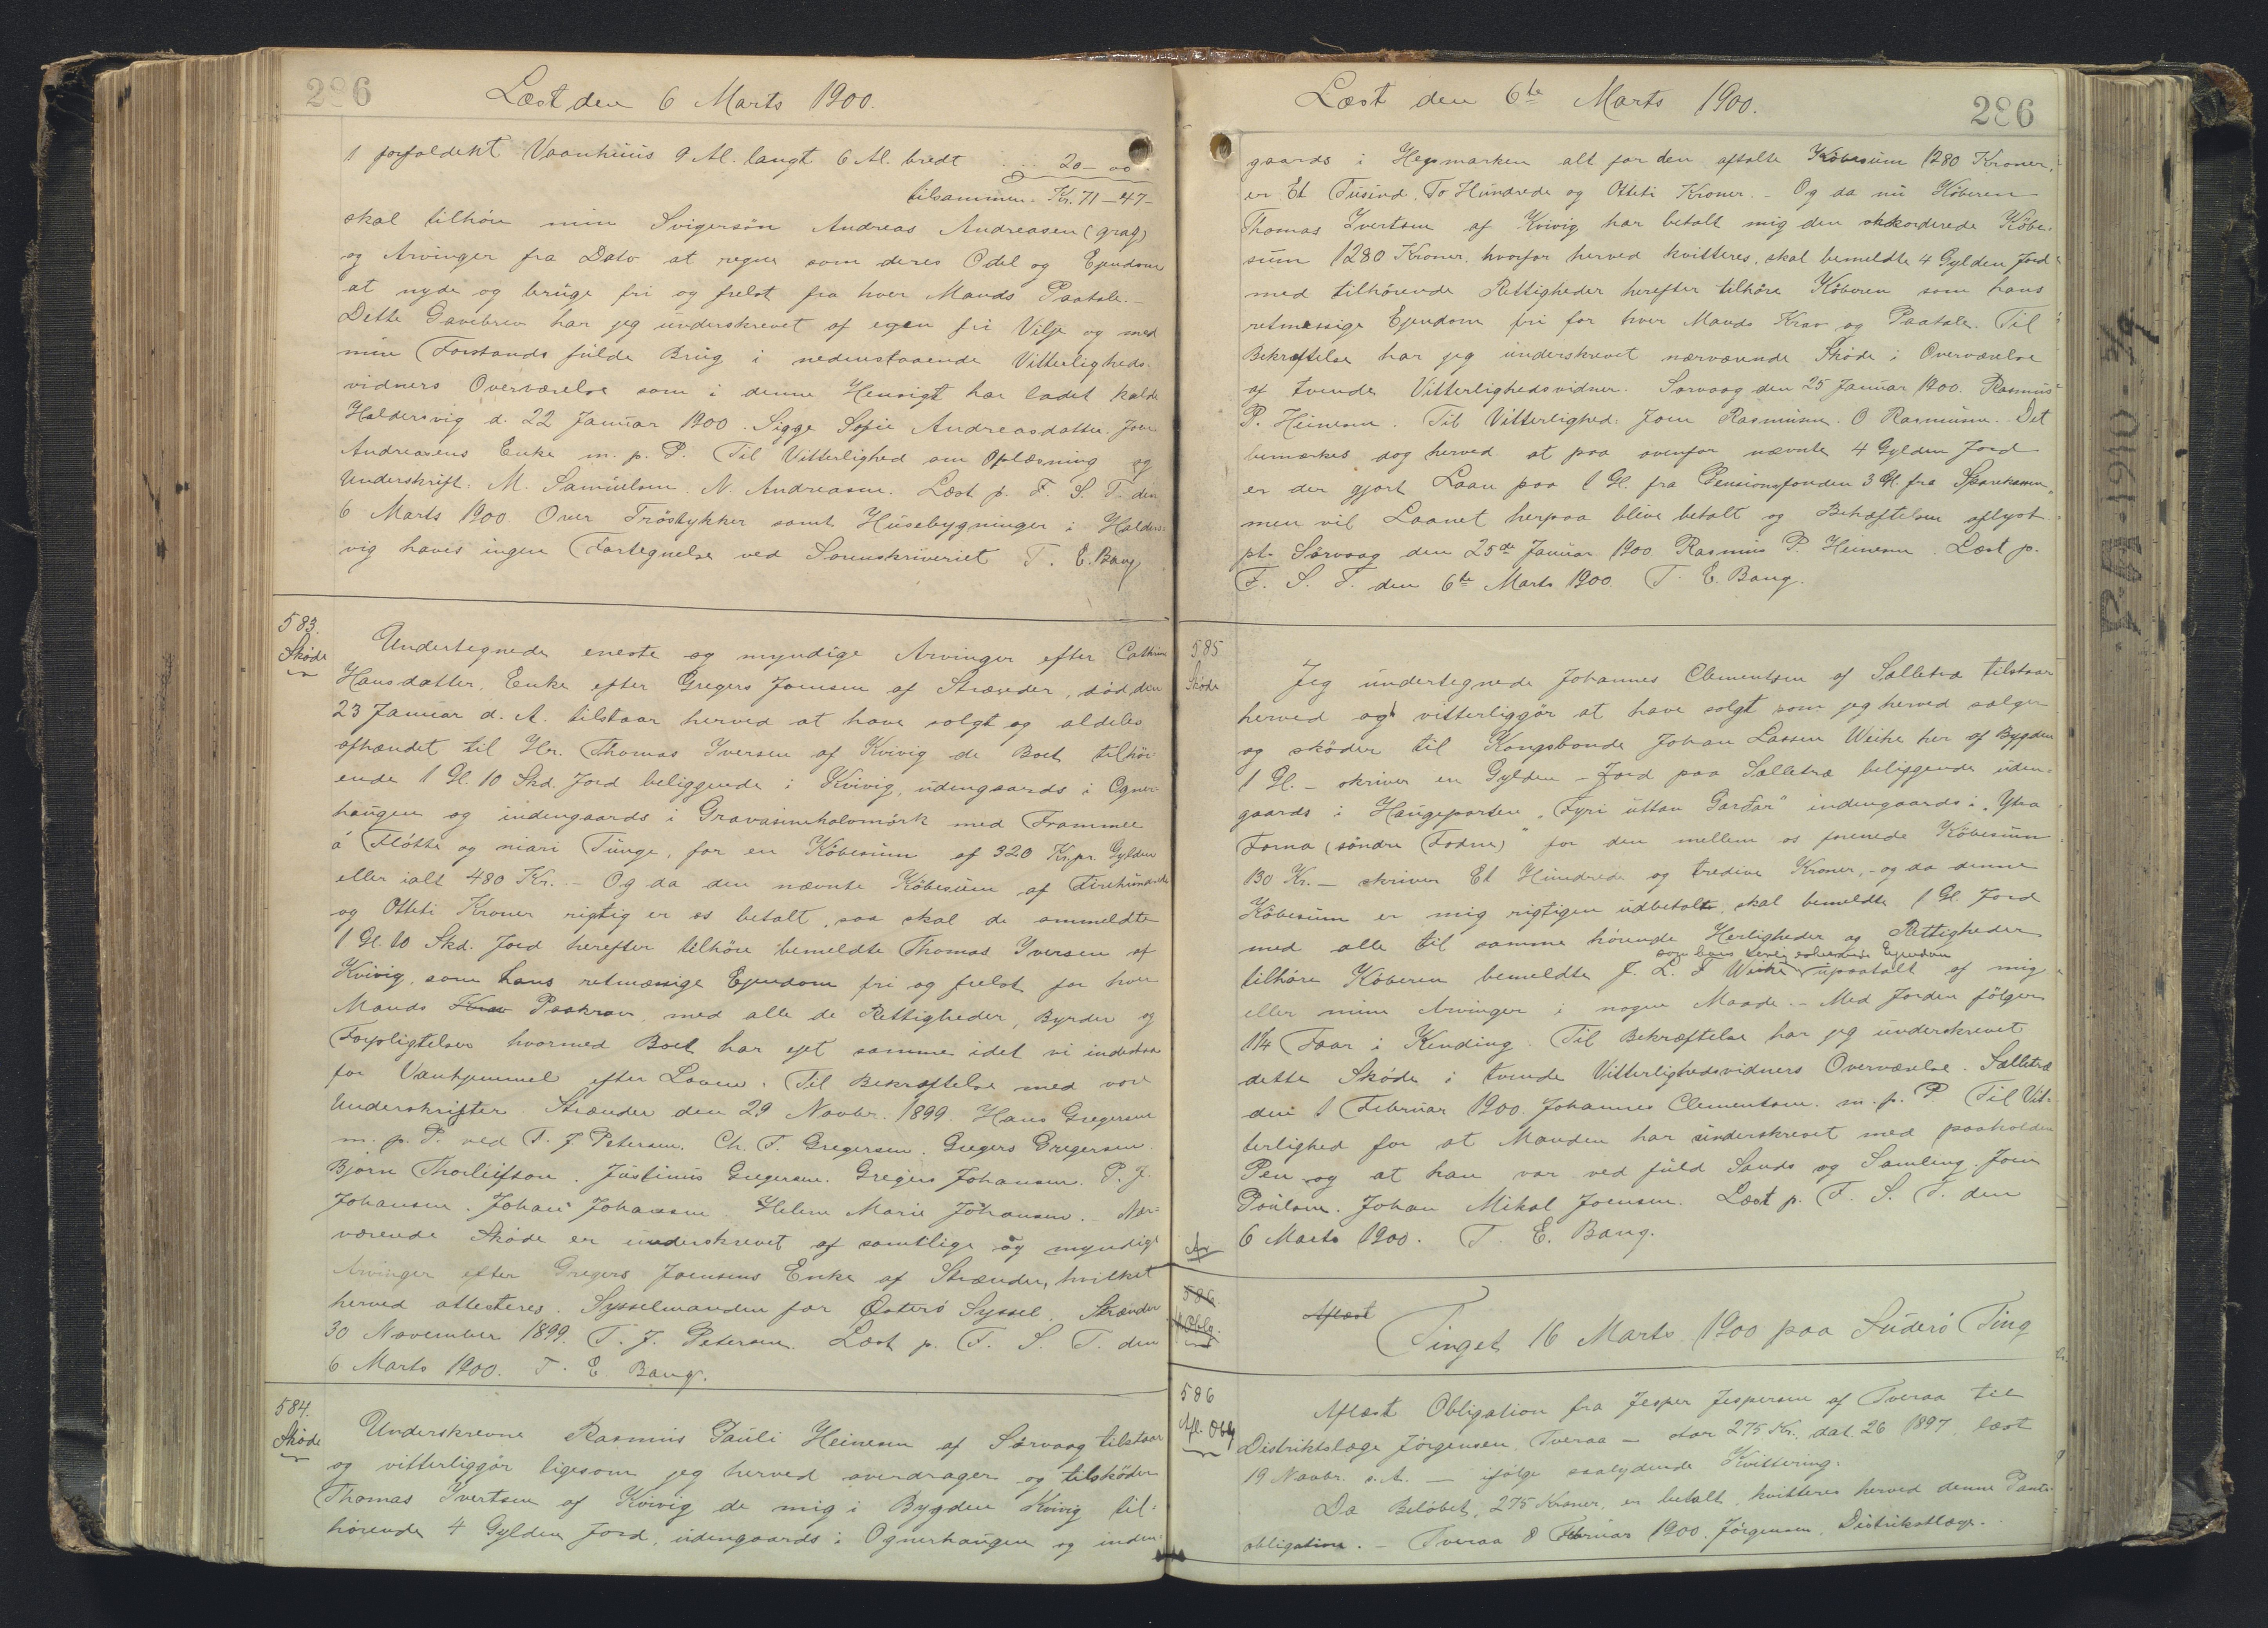 286
Læst den 6 Marts 1900.
1 forfaldent Vaanhuus 9 Al. langt 6 Al. bredt ... 20 - 00
tilsammen Kr. 71 - 47 -
skal tilhöre min Svigersön Andreas Andreasen (graf)
og Arvinger fra Dato at regne som deres Odel og Ejendom
at nyde og bruge fri og frelst fra hver Mands Paatale. -
Dette Gavebrev har jeg underskrevet af egen fri Vilje og med
min Forstands fulde Brug i nedenstaaende Vitterligheds-
vidners Overværelse som i denne Hensigt har ladet kalde
Haldersvig d. 22 Januar 1900. Sigge Sofie Andreasdatter. Joen
Andreasens Enke m. p. P. Til Vitterlighed om Oplæsning og
Underskrift: M. Samuelsen. N. Andreasen. Læst p. F. S. T. den
6 Marts 1900 Over Tröstykker samt Husebygninger i Halders-
vig haves ingen Fortegnelse ved Sorenskriveriet T. E. Bang
583.
Skøde
Undertegnede eneste og myndige Arvinger efter Cathrine
Hansdatter, Enke efter Gregers Joensen af Strænder, död den
23 Januar d. A. tilstaar herved at have solgt og aldeles
afhændet til Hr. Thomas Iversen af Kvivig de Boet tilhör-
ende 1 Gl. 10 Skd. Jord beliggende i Kvivig, udengaards i Ogner-
haugen og indengaards i Gravasineholomörk med Frammee
á Flótti og niari Tunge, for en Købesum af 320 Kr. pr. Gylden
eller ialt 480 Kr. - Og da den nævnte Købesum af Firehundrede
og Otteti Kroner rigtig er os betalt, saa skal de ommeldte
1 Gl. 10 Skd. Jord herefter tilhöre bemeldte Thomas Iversen af
Kvivig, som hans retmæssige Ejendom fri og frelst for hver
Mands Krav Paakrav, med alle de Rettigheder, Byrder og
Forpligtelser hvormed Boet har ejet samme idet vi indestaa
for Vanhjemmel efter Loven. Til Bekræftelse med vore
Underskrifter. Strænder den 29 Novbr. 1899. Hans Gregersen
m. p. P. ved T. J. Petersen. Ch. F. Gregersen. Gregers Gregersen.
Bjørn Thorleifson. Justinus Gregersen. Gregers Johansen. P. J.
Johansen. Johan Johansen Helene Marie Johansen. - Nær-
værende Skøde er underskrevet af samtlige og myndige
Arvinger efter Gregers Joensens Enke af Strænder, hvilket
herved attesteres. Sysselmanden for Österö Syssel. Strænder
30 November 1899. T. J. Petersen. Læst p. F. S. T. den
6 Marts 1900. T. E. Bang.
584.
Skøde
Underskrevne Rasmus Pauli Heinesen af Sörvaag tilstaar
og vitterliggör ligesom jeg herved overdrager og tilsköder
Thomas Ivertsen af Kvivig de mig i Bygden Kvivig til-
hörende 4 Gylden Jord, udengaards i Ognerhaugen og inden-
Læst den 6te Marts 1900.
286
gaards i Hegsmarken alt for den aftalte Købesum 1280 Kroner,
er Et Tusind, To Hundrede og Otteti Kroner. - Og da nu Köberen
Thomas Ivertsen af Kvivig har betalt mig den akkorderede Købe-
sum 1280 Kroner, hvorfor herved kvitteres, skal bemeldte 4 Gylden Jord
med tilhörende Rettigheder herefter tilhöre Köberen som hans
retmæssige Ejendom fri for hver Mands Krav og Paatale. Til
Bekræftelse har jeg underskrevet nærværende Skøde i Overværelse
af tvende Vitterlighedsvidner. Sörvaag den 25 Januar 1900. Rasmus
P. Heinesen. Til Vitterlighed: Joen Rasmussen. O Rasmussen. Det
bemærkes dog herved at paa ovenfor nævnte 4 Gylden Jord
er der gjort Laan paa 1 Gl. fra Pensionsfonden 3 Gl. fra Sparekassen,
men vil Laanet herpaa blive betalt og Behæftelsen aflyst.
pt. Sörvaag den 25de Januar 1900 Rasmus P. Heinesen. Læst p.
F. S. T. den 6te Marts 1900. T. E. Bang.
585
Skøde
Jeg undertegnede Johannes Clementsen af Selletræ tilstaar
herved og vitterliggör at have solgt som jeg herved sælger
og sköder til Kongsbonde Johan Lassen Weihe her af Bygden
1 Gl. - skriver en Gylden - Jord paa Selletræ beliggende uden-
gaards i Haugeparten "Fyri uttan Garđar" indengaards i "Ytra
Forna (söndre Fodne)" for den mellem os forenede Købesum
130 Kr. - skriver Et Hundrede og tredive Kroner, - og da denne
Købesum er mig rigtigen udbetalt, skal bemeldte 1 Gl. Jord
med alle til samme hörende Herligheder og Rettigheder
som hans lovlig erhvervede Ejendom
tilhöre Köberen bemeldte J. L. J Weihe upaatalt af mig
eller mine Arvinger i nogen Maade. - Med Jorden fölger
1 1/4 Faar i Kending. Til Bekræftelse har jeg underskrevet
dette Skøde i tvende Vitterlighedsvidners Overværelse. Selletræ
den 1 Februar 1900. Johannes Clementsen. m. p. P. Til Vit-
terlighed for at Manden har underskrevet med paaholden
Pen og at han var ved fuld Sands og Samling. Joen
Poulsen. Johan Mikal Joensen. Læst p. F. S. T. den
6 Marts 1900. T. E. Bang.
586.
Oblg.
Aflæst
Tinget 16 Marts 1900 paa Suderö Ting
586
Afl. Oblg
Aflæst Obligation fra Jesper Jespersen af Tveraa til
Distriktslæge Jörgensen, Tveraa - stor 275 Kr. dat. 26 1897 læst
19 Novbr. s. A. - ifölge saalydende Kvittering.
Da Belöbet, 275 Kroner, er betalt, kvitteres herved denne Pante-
obligation. - Tveraa 8 Februar 1900. Jörgensen. Distriktslæge.